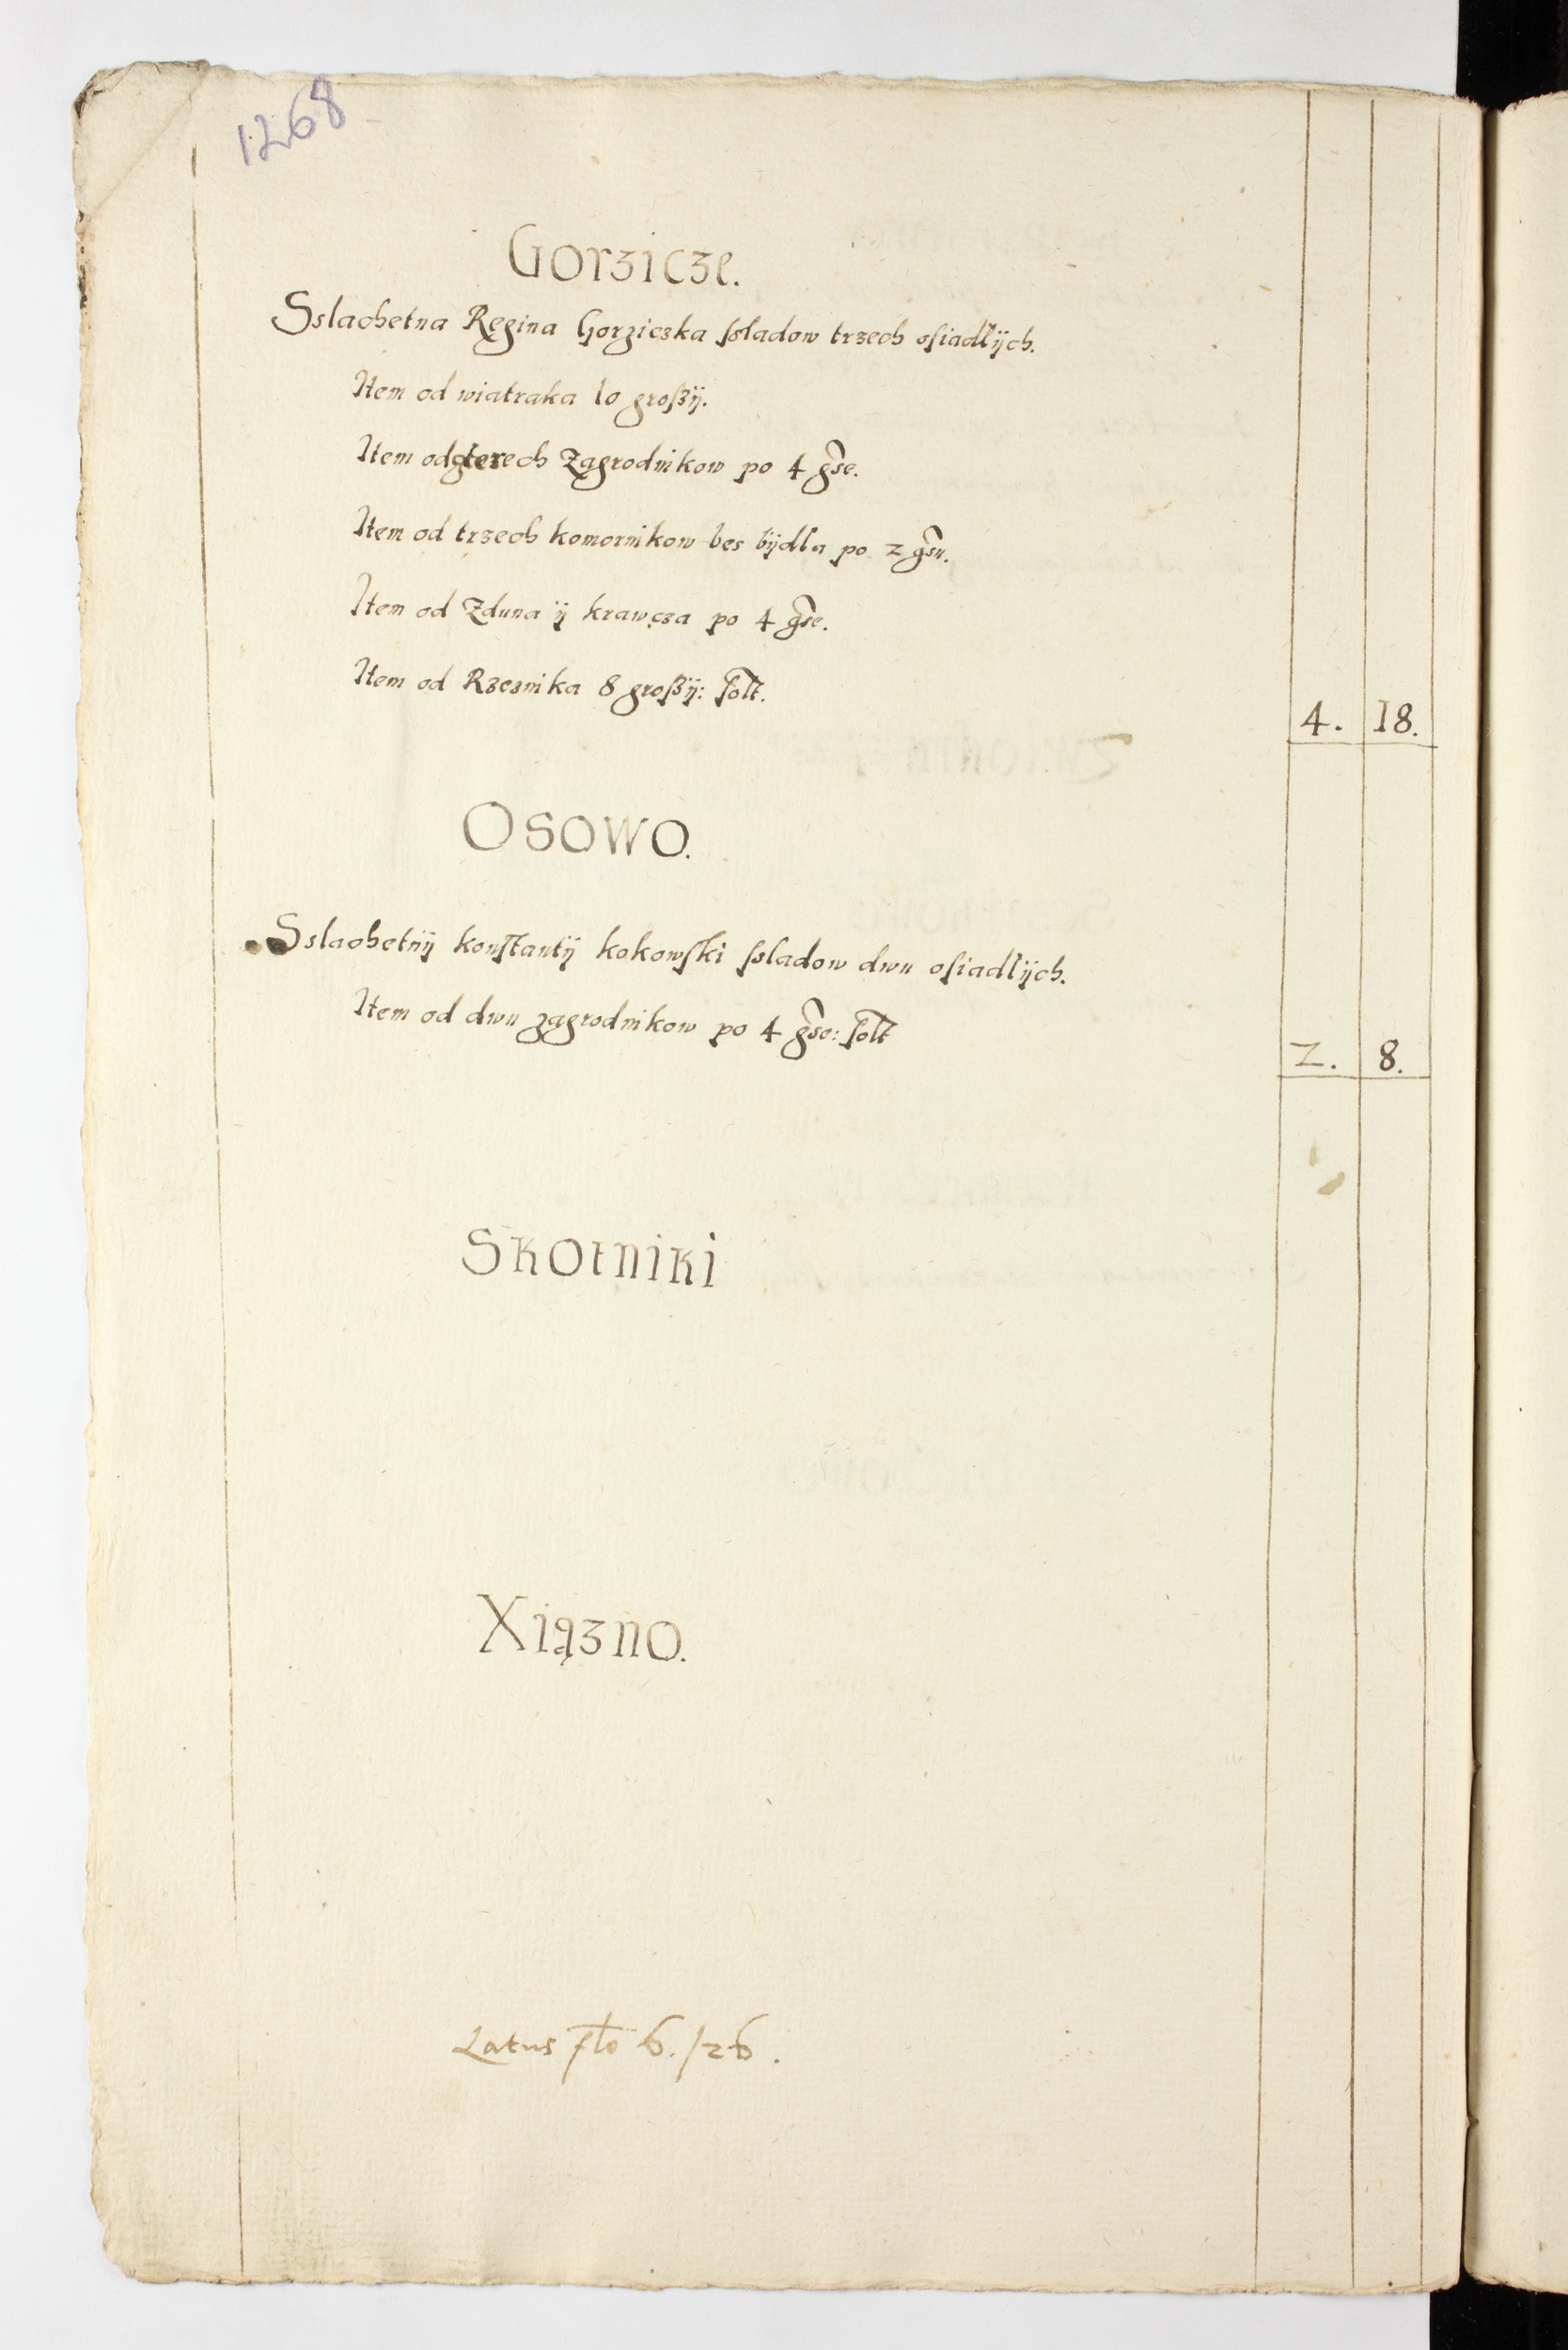 1268
Gorzicze.
Sslachetna Regina Gorziczka sladow trzech osiadlÿch.
Item od wiatraka 10 großÿ.
Item od Zagrodnikow po 4 gse.
Item od trzech komornikow bes bÿdla po 2 gsu.
Item od Zduna ÿ krawcza po 4 gse.
Item od Rzeznika 8 großÿ: solt.
4. 18.
Osowo.
Sslachetnÿ konstantÿ kokowski sladow dwu osiadlÿch.
Item od dwu zagrodnikow po 4 gse: solt
2. 8.
Skotniki
Xiązno.
Latus flo 6. /26.